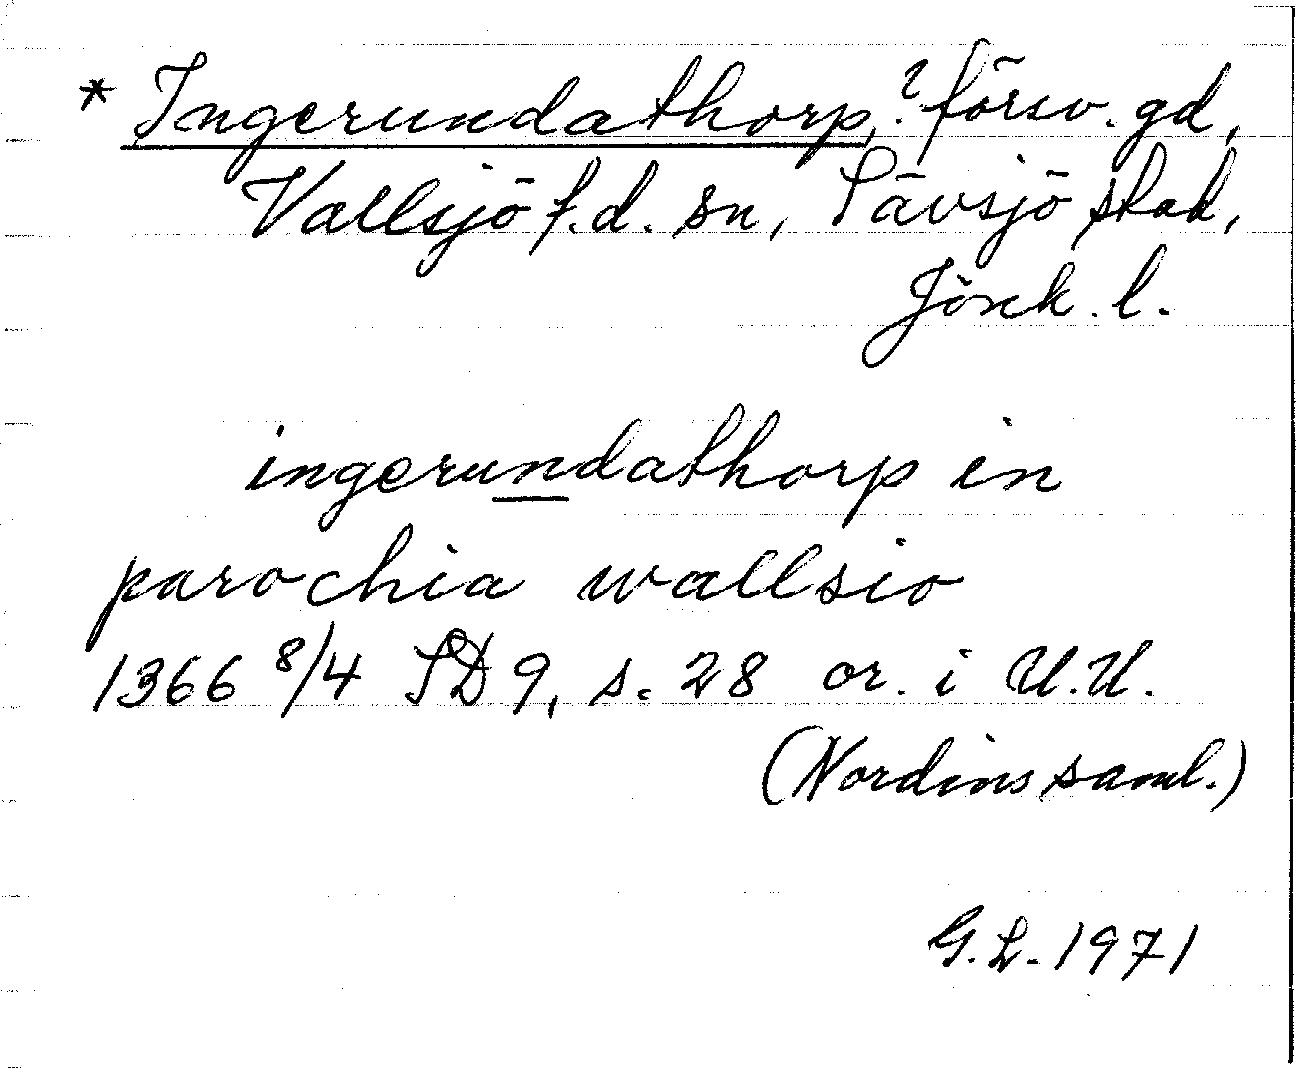 * Ingerundathorp, ? försv. gd,
Vallsjö f.d. sn, Sävsjö stad,
Jönk. l.
ingerundathorp in
parochia wallsio
1366 8/4 SD 9, s. 28 or. i U.U.
(Nordins saml.)
G.L. 1971